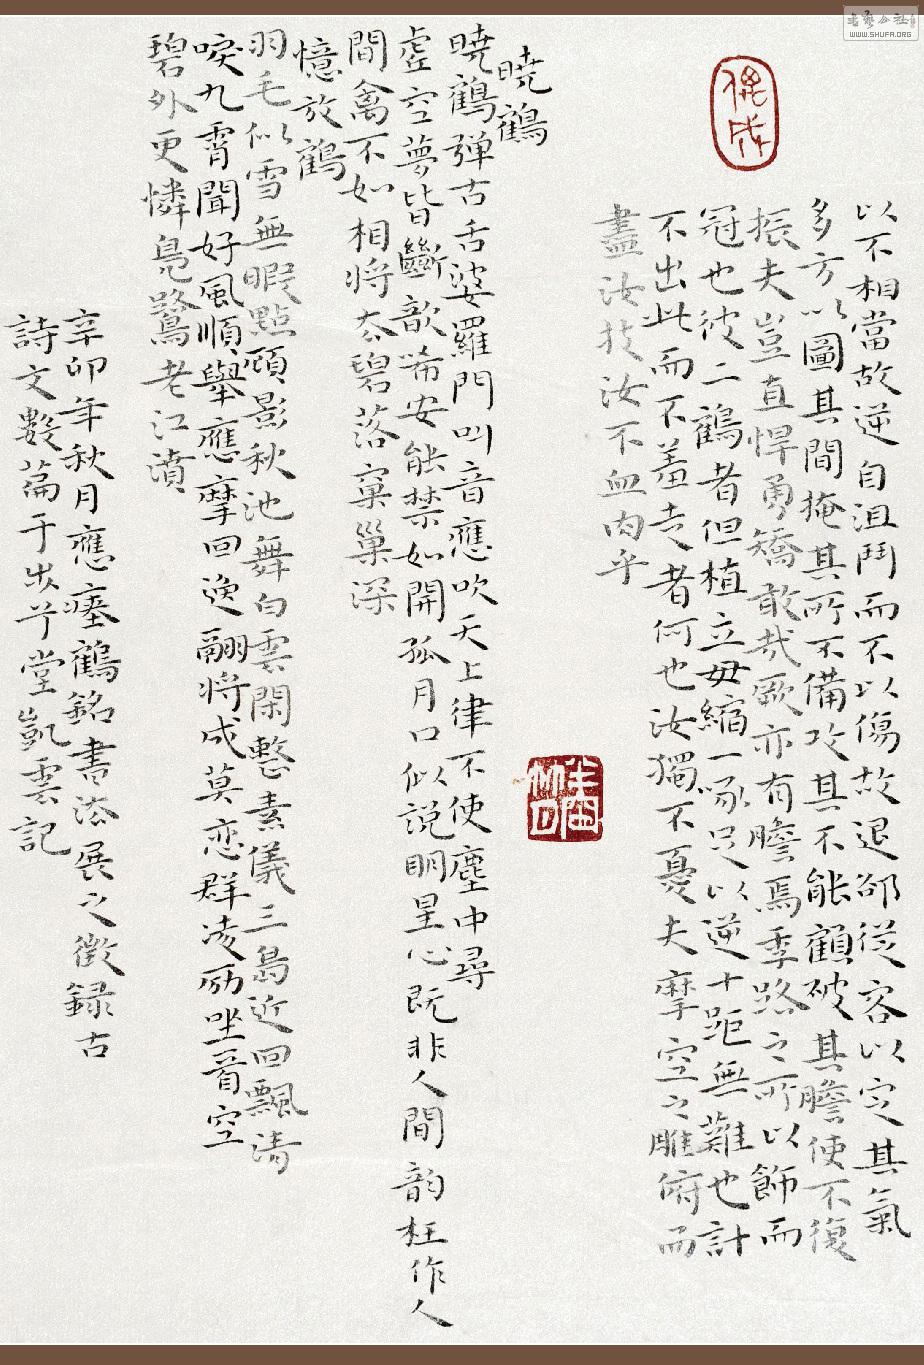 以不相當故逆自沮鬥而不以傷故退卻從容以定其氣
多方以圖其間掩其所不備攻其不能顧破其膽使不復
振夫豈直悍勇矯敢哉歐亦有膽焉季路之所以飾而
冠也彼二鶴者但植立毋縮一啄足以逆十距無難也計
不出此而不羞走者何也汝獨不憂夫摩空之雕俯而
盡汝技汝不血肉乎
曉鶴
曉鶴彈古舌婆羅門叫音應吹天上律不使塵中尋
虛空夢皆斷歆唏安能禁如開孤月口似說明星心既非人間韵枉作人
間禽不如相將去碧落窠巢深
憶放鶴
羽毛似雪無暇點顧影秋池舞白雲閑整素儀三島近回飄清
唳九霄聞好風順舉應摩回逸翮將成莫恋群凌励坐看空
碧外更憐鳧鷺老江濆
辛卯年秋月應瘞鶴銘書法展之徵録古
詩文數篇于堂凱雲記
書藝公社
WWW.SHUFA.ORG